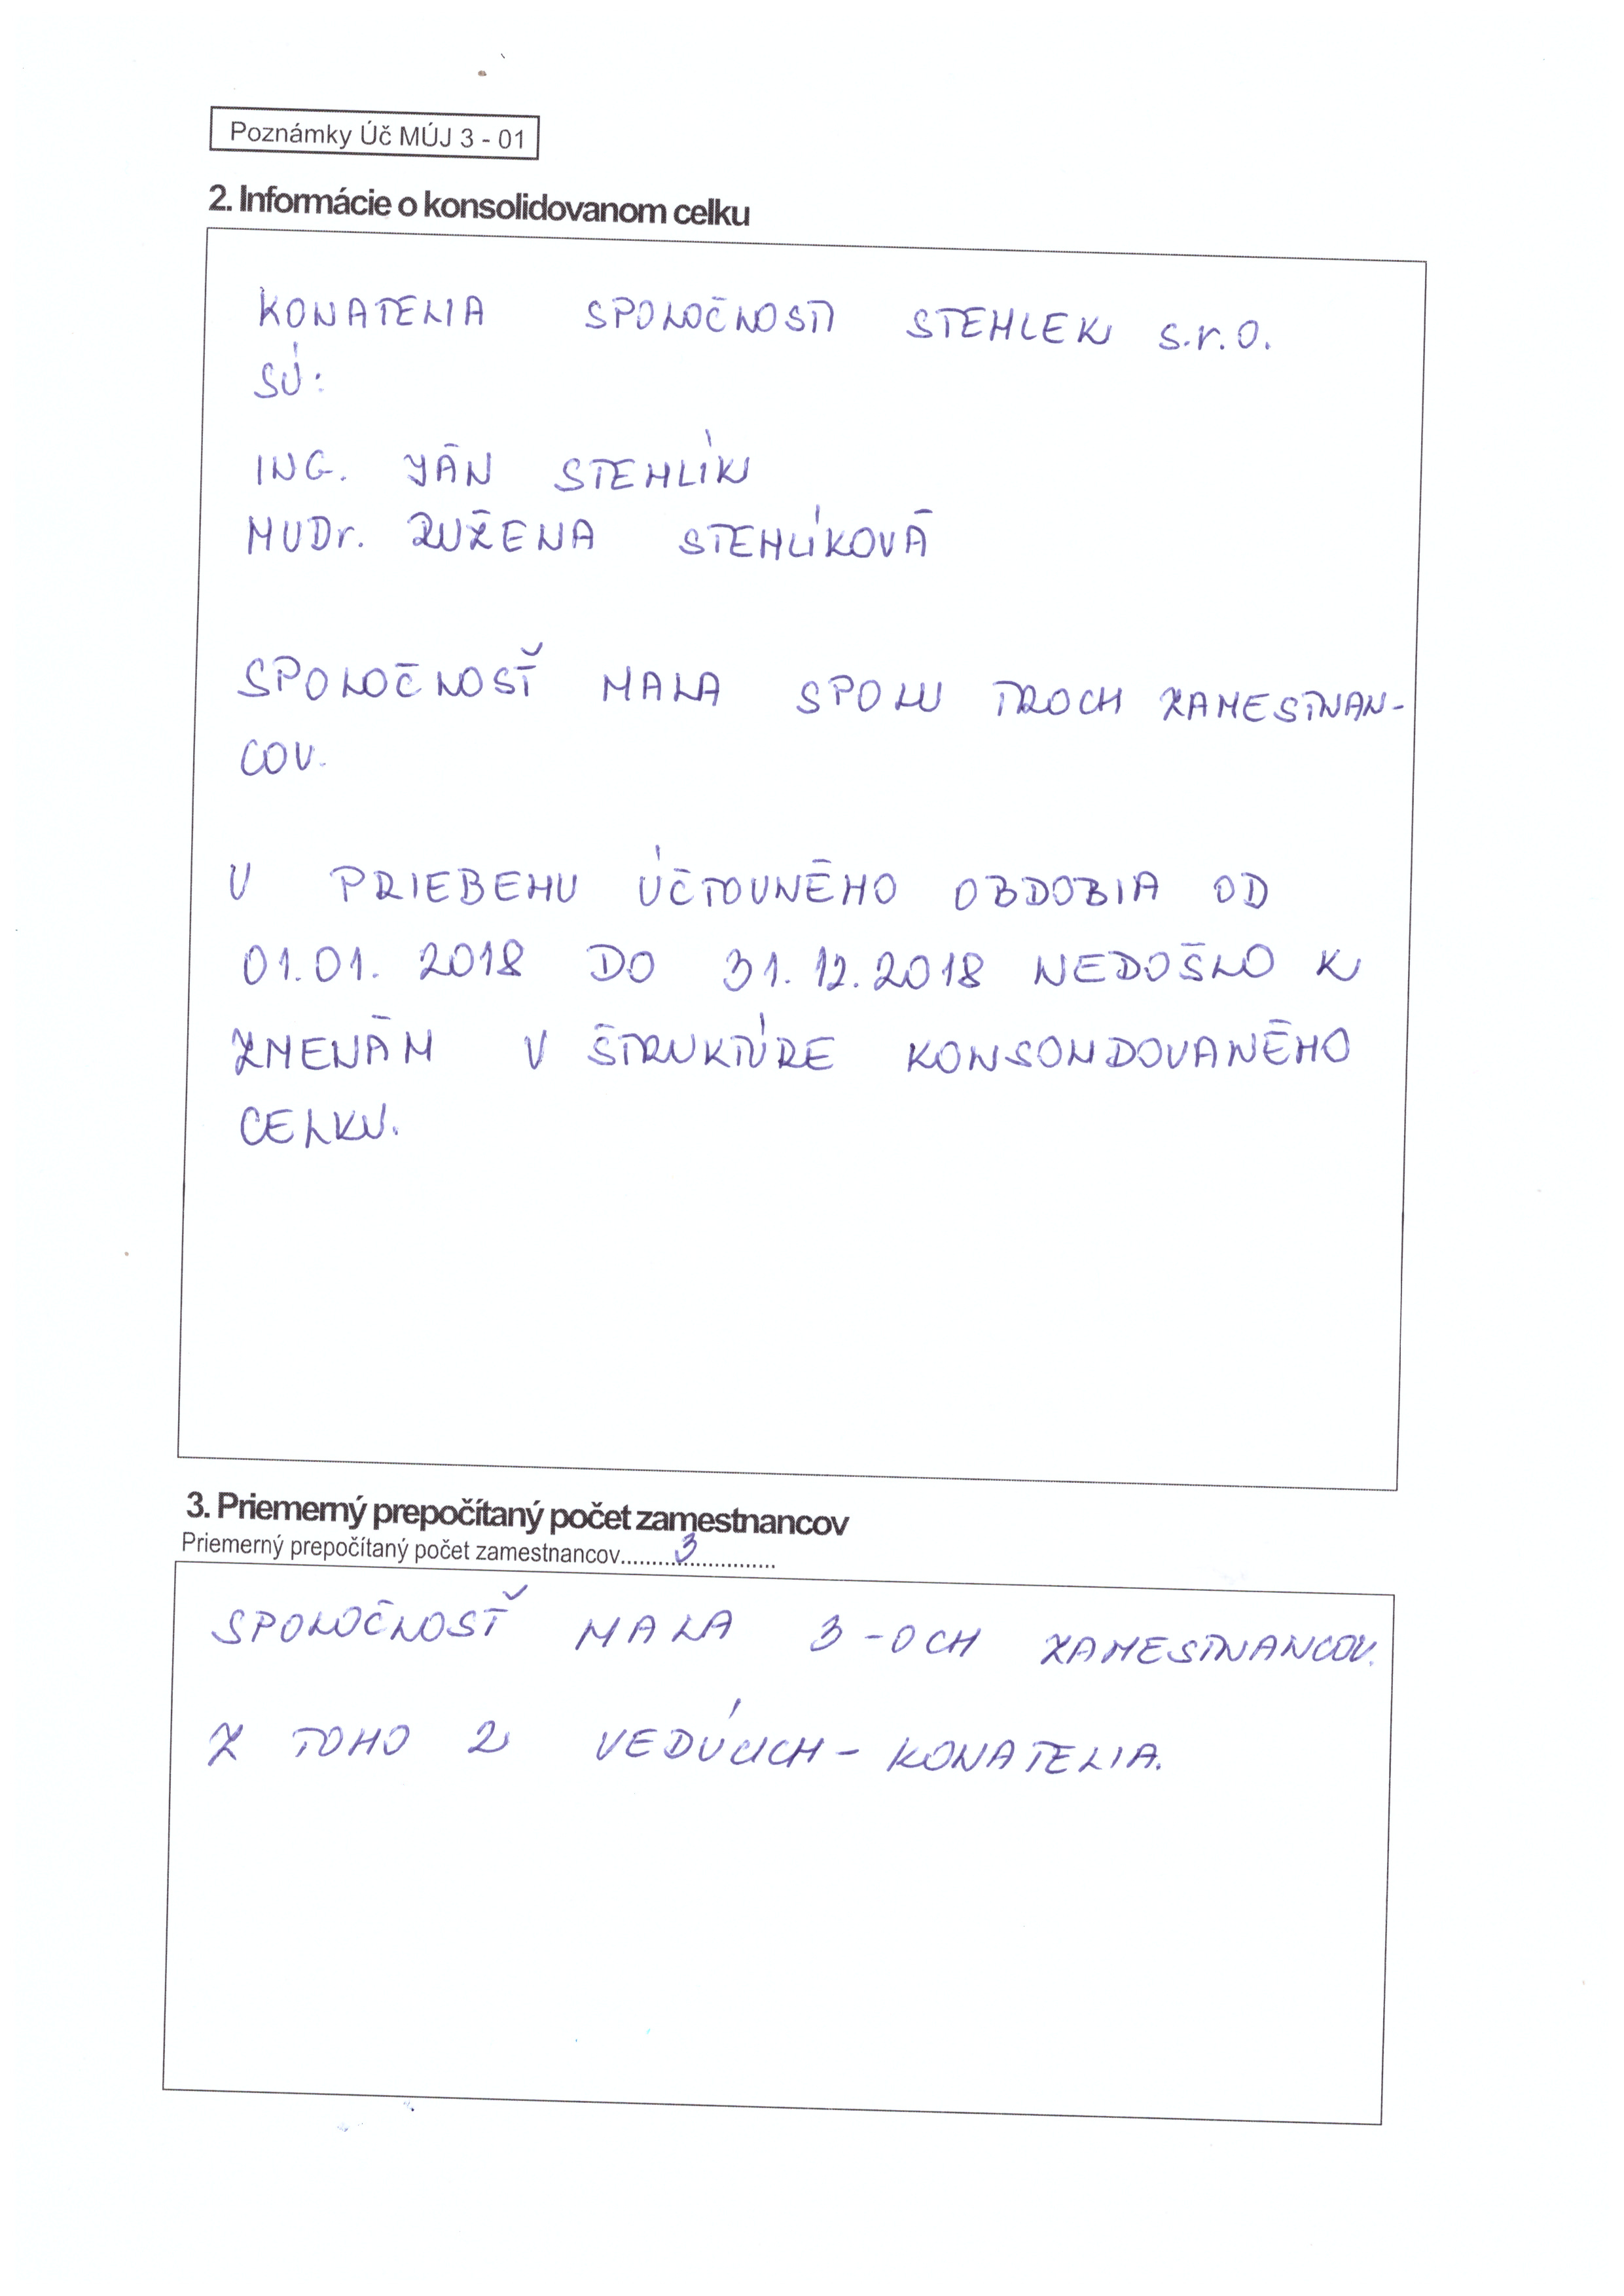 Poznámky Úč MÚJ 3 - 01
2. Informácie o konsolidovanom celku
KONATELIA SPOLOČNOSTI STEHLEK s.r.o.
SÚ:
ING. JÁN STEHLÍK
MUDr. RUŽENA STEHLÍKOVÁ
SPOLOČNOSŤ MALA SPOLU TROCH ZAMESTNAN-
COV.
V PRIEBEHU ÚČTOVNÉHO OBDOBIA OD
01.01. 2018 DO 31.12.2018 NEDOŠLO K
ZMENÁM V ŠTRUKTÚRE KONSOLIDOVANÉHO
CELKU.
3. Priemerný prepočítaný počet zamestnancov
Priemerný prepočítaný počet zamestnancov.........3...............
SPOLOČNOSŤ MALA 3-OCH ZAMESTNANCOV.
Z TOHO 2 VEDÚCICH - KONATELIA.